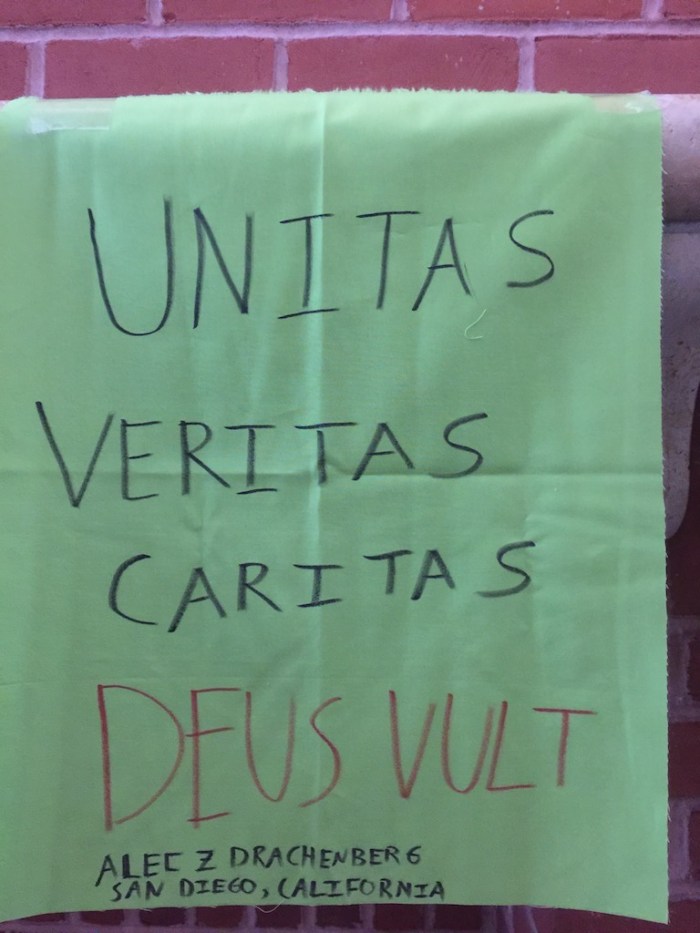 UNITAS
VERITAS
CARITAS
DEUS VULT
ALEC Z DRACHENBERG
SAN DIEGO, CALIFORNIA